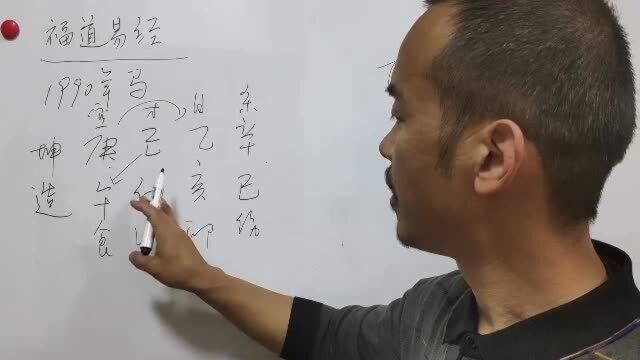 福道易经
1990年马
官 才 日 杀
坤 庚 己 乙 辛
造 午 亥 巳
食 印 伤